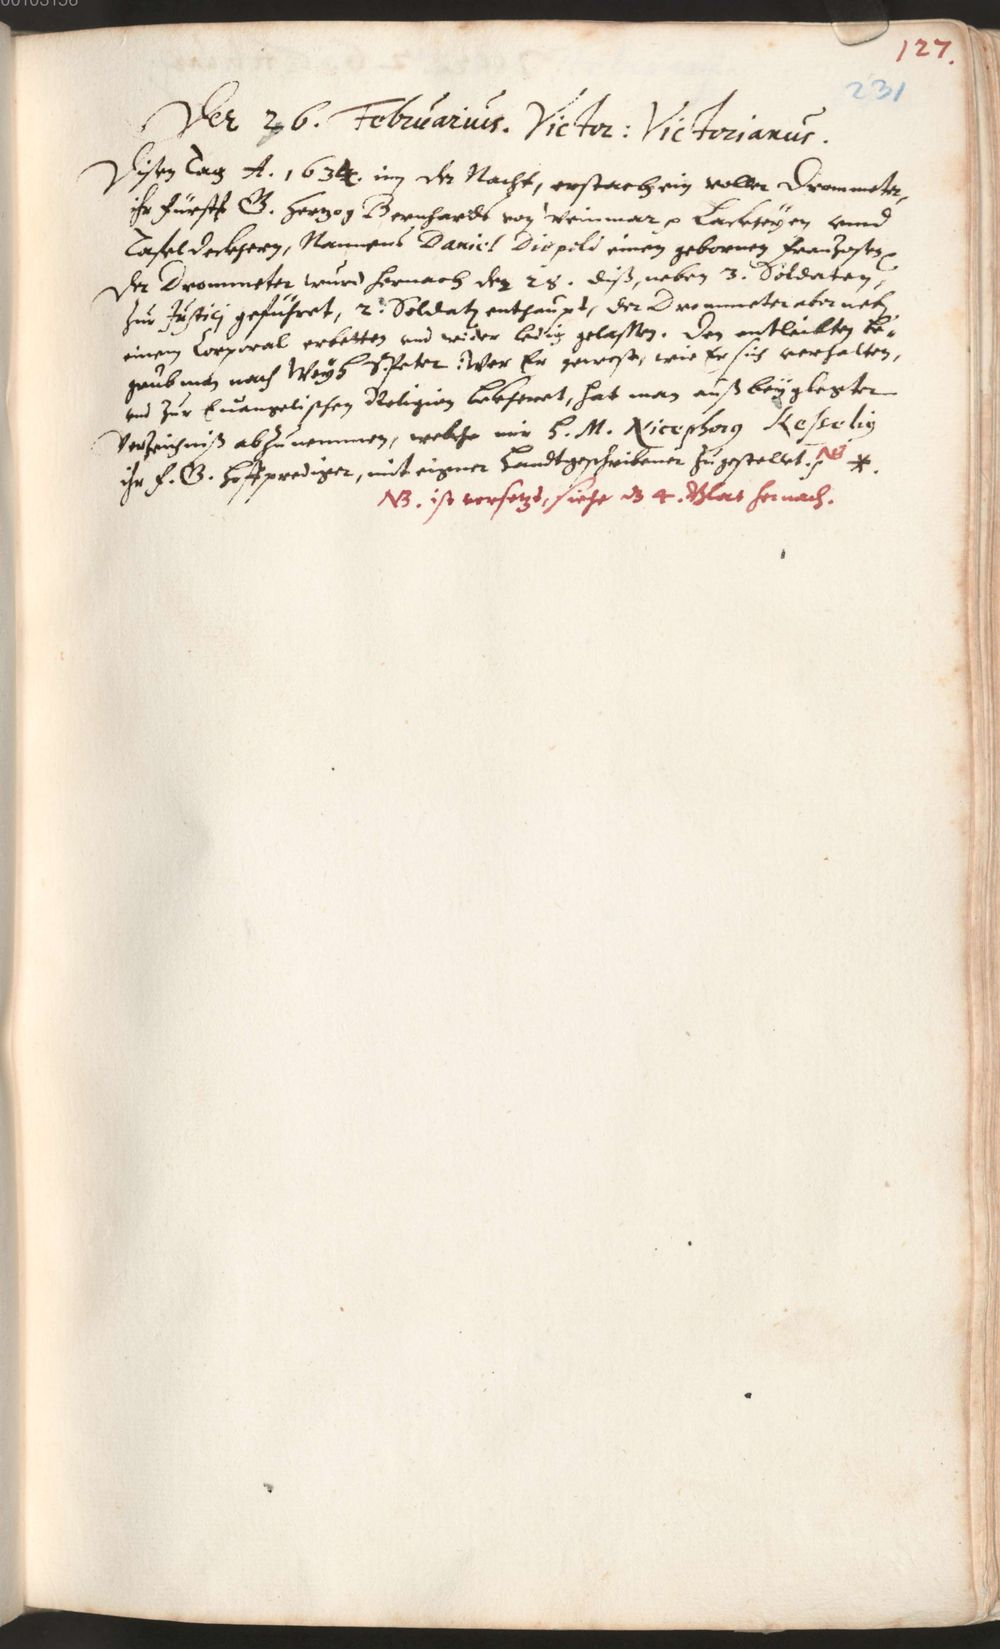 00103136
127.
231
Der 26. Februarius. Victor: Victorianus.
Disen Tag A. 1634. inn der Nacht, erstach ein voller Drommeter,
ihr Fürstl. G. Hertzog Bernhards von Weinmar p Lackheyen unnd
Tafeldeckhern, Nammens Daniel Diepold einen gebornen Franzosen
der Drommeter wurd hernach den 28. diß, neben 3. Soldaten,
zur Justitj geführet, 2. Soldatn enthaupt, der Drommeter aber neb
einem Corporal erbetten und wider ledig gelassen. Den entleibten be-
grub man nach Weyh S. Peter. Wer Er gewest, wie Er sich verhalten,
und zur Evangelischen Religion bekheret, hat man auß beyglegter
Verzeichniß abzunemmen, welche mir H. M. Nicephorus Kesselig
ihr F. G. Hoffprediger, mit eigner Handt geschribener zugestellet. NB *.
NB. ist versetzt, siehe das 4. Blat hernach.